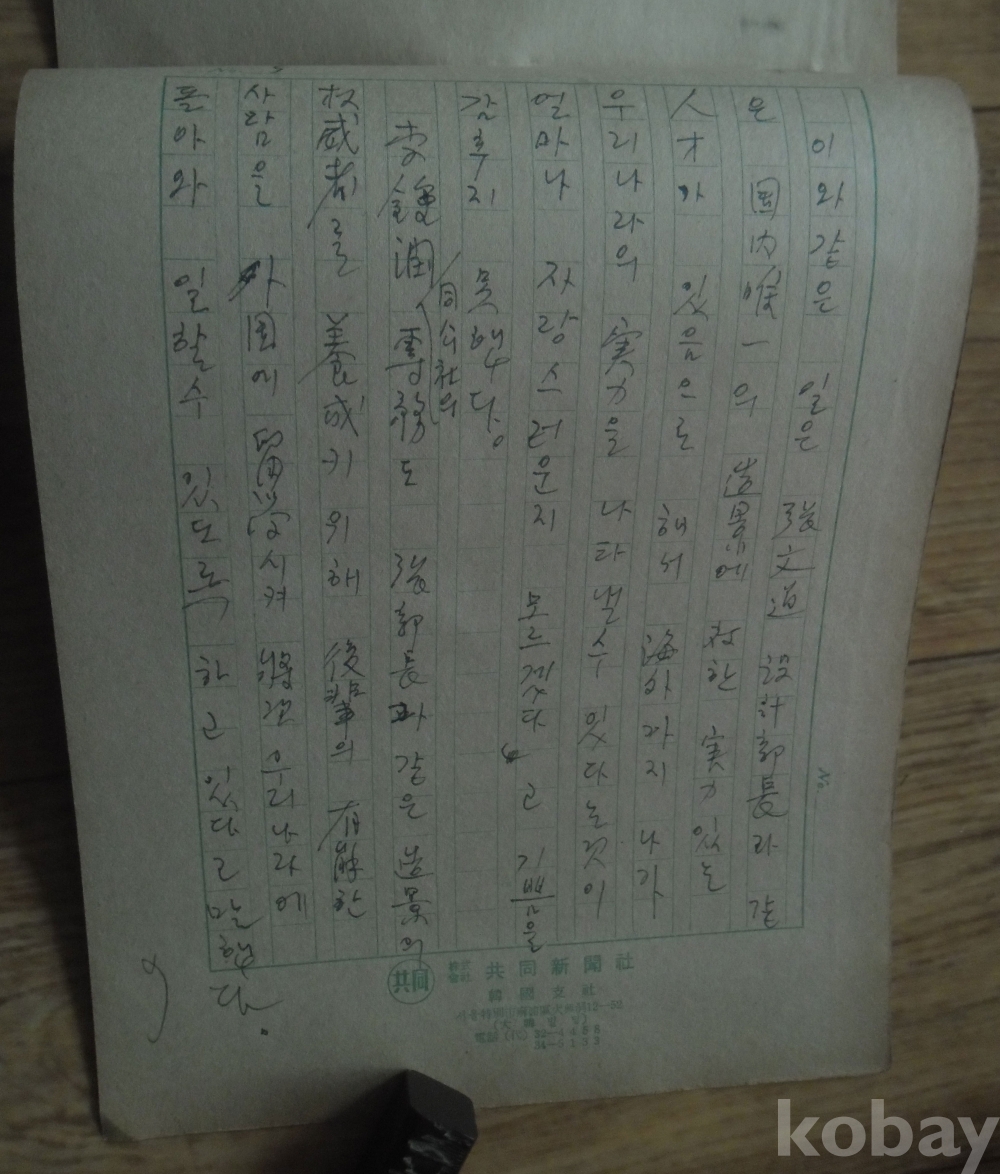 이와같은 일은 張文道 設計部長과 같
은 國内唯一의 造景에 対한 実力있는
人才가 있음으로 해서 海外까지 나가
우리나라의 実力을 나타낼수 있다는것이
얼마나 자랑스러운지 모르겠다"고 기쁨을
감추지 못했다。
同公社의
李鍾潤 專務도 張部長과 같은 造景의
权威者를 養成키위해 後輩의 有能한
사람을 外国에 留学시켜 將次 우리나라에
돌아와 일할수 있도록 하고 있다고 말했다.
No.
共同
株式会社 共同新聞社
韓國支社
kobay